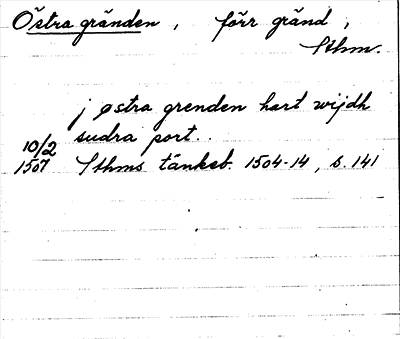 Östra gränden, förr gränd,
Sthm.
j østra grenden hart wijdh
sudra port..
10/2
1507 Sthms tänkeb. 1504-14, s. 141